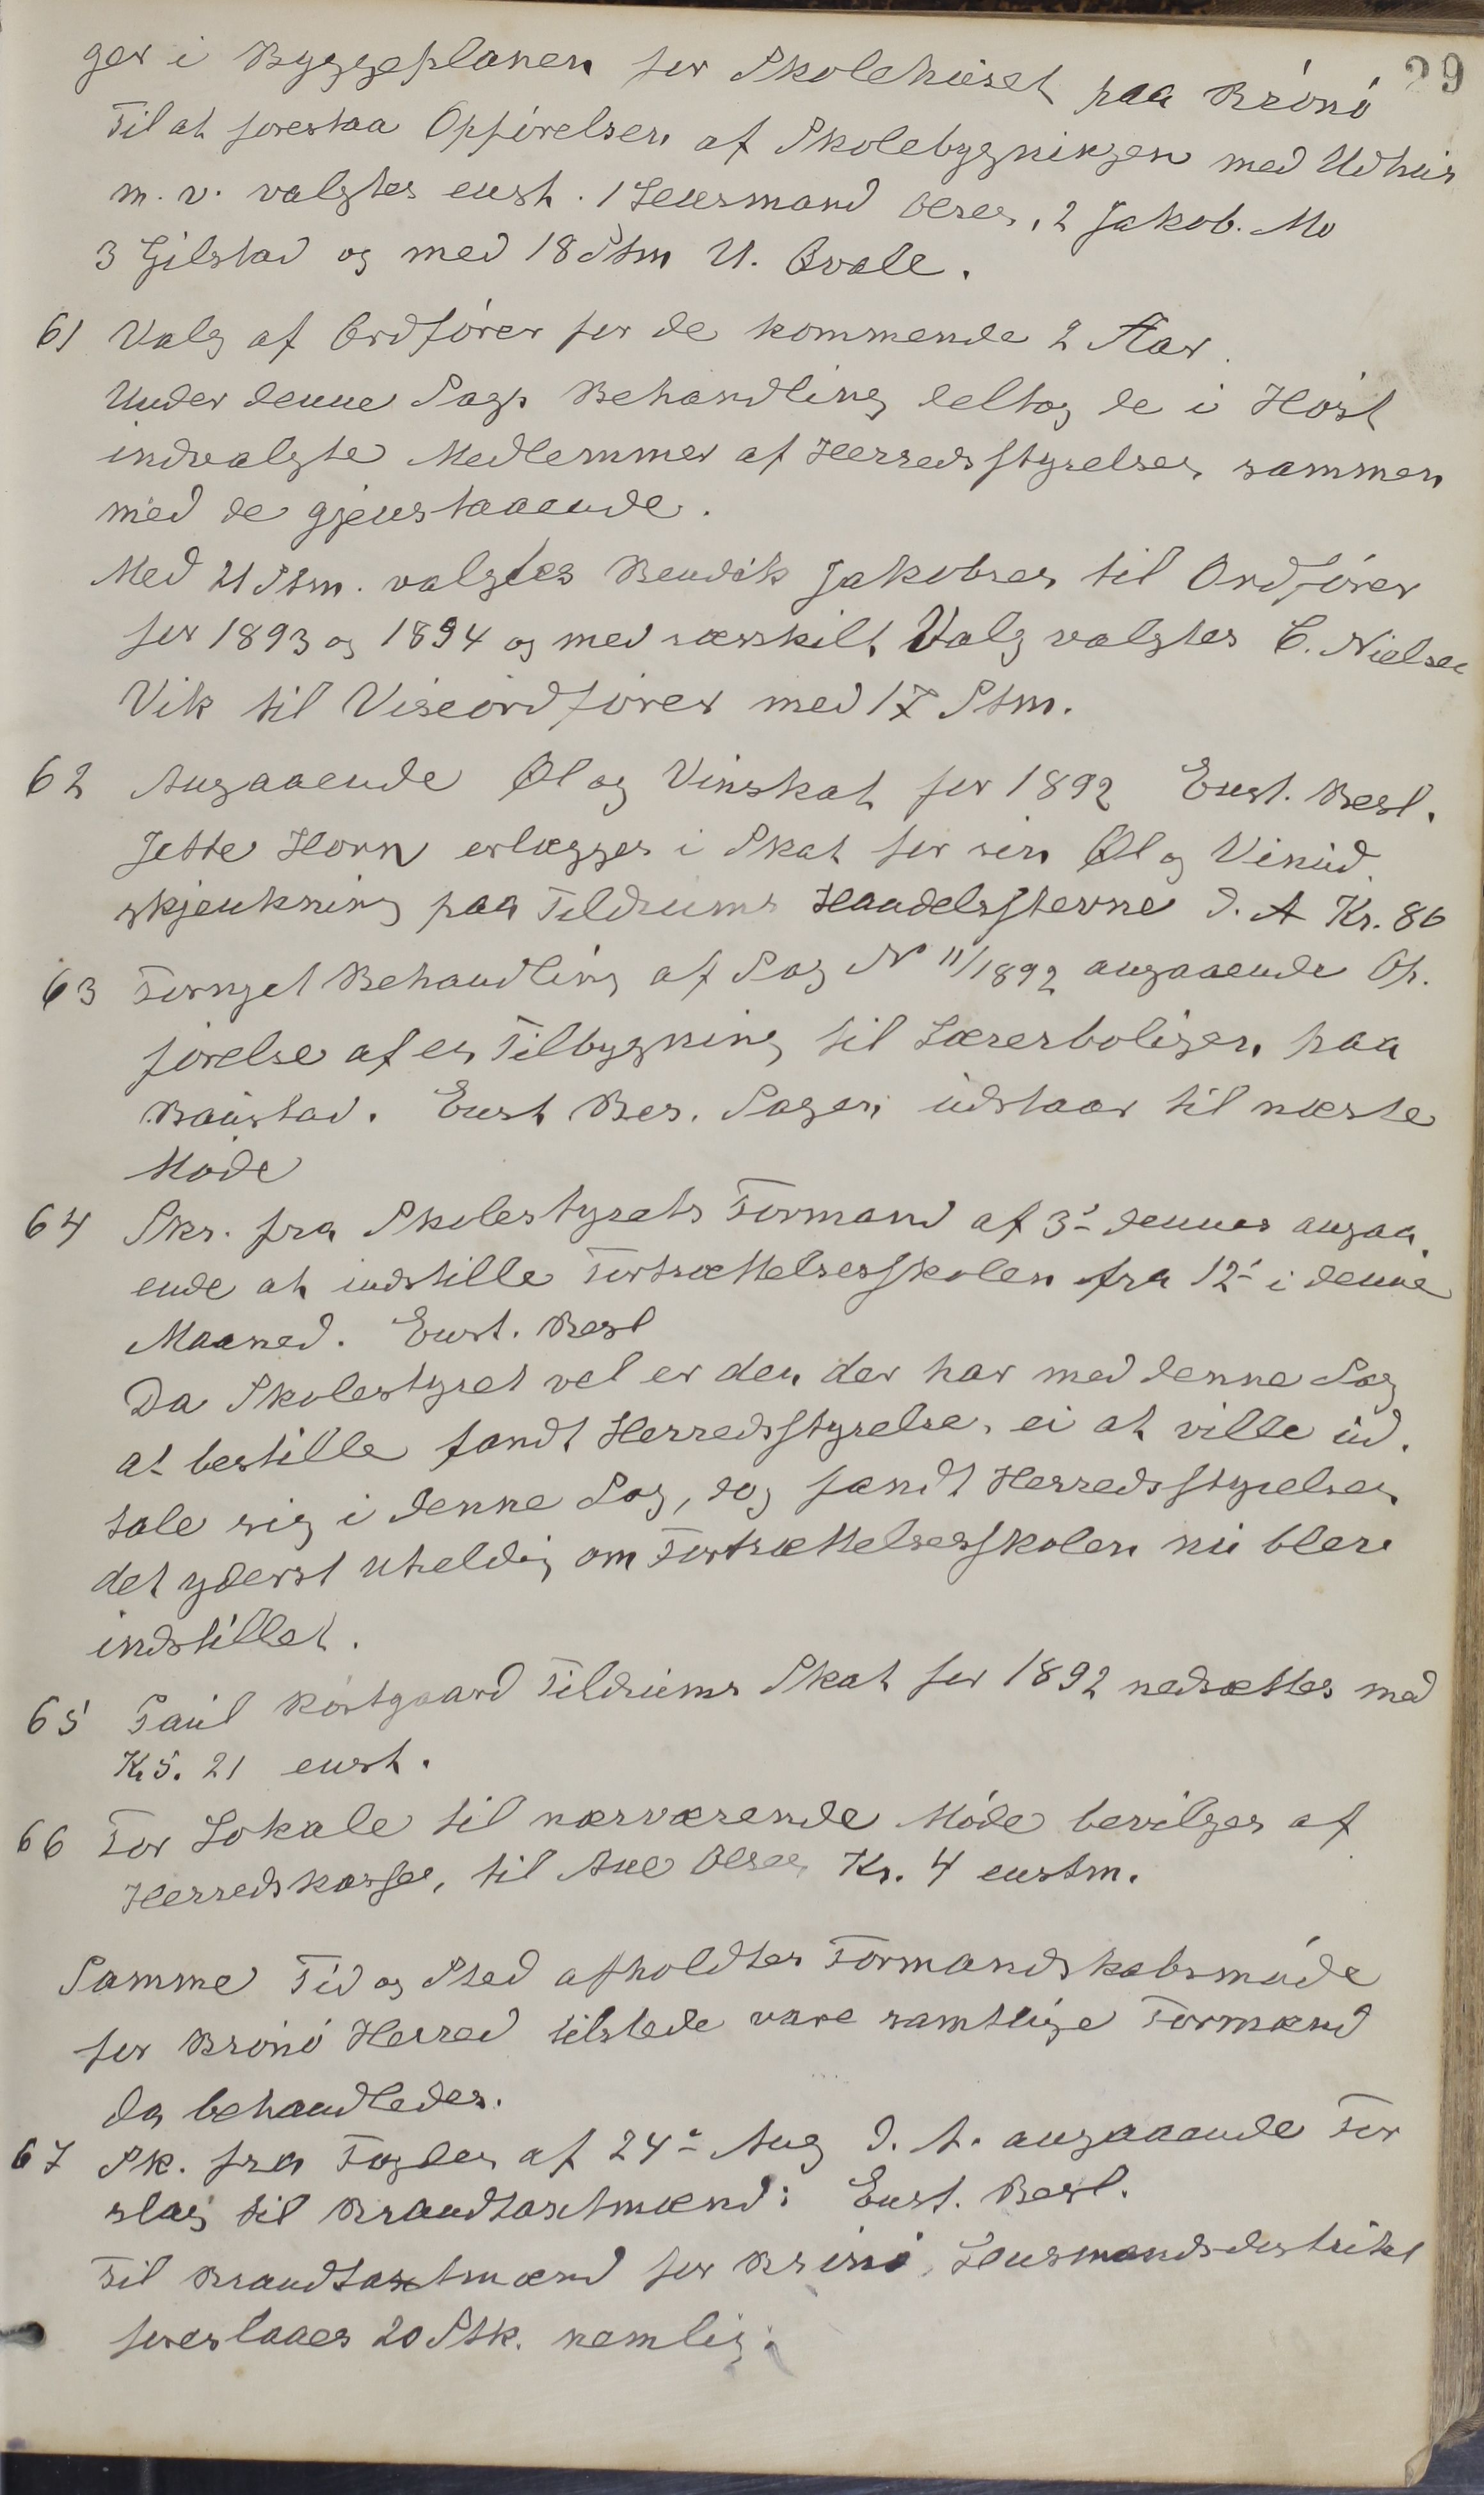 29
ger i Byggeplanen for Skolehuset paa Brönö
Til at forestaa Opförelsen af Skolebygningen med Udhus
m. v. valgtes enst. 1 Lensmand Olsen, 2 Jakob. Mo
3 Gilstad og med 18 Stm U. Qvale.
61 Valg af Ordförer for de kommende 2 Aar.
Under denne Sags Behandling deltog de i Höst
indvalgte Medlemmer af Herredsstyrelsen sammen
med de gjenstaaende.
Med 21 Stm. valgtes Bendik Jakobsen til Ordförer
for 1893 og 1894 og med særskilt Valg valgtes C. Nielsen
Vik til Viseordförer med 17 Stm.
62 Angaaende Øl og Vinskat for 1892 Enst. Besl.
Jette Horn erlægger i Skat for sin Øl og Vinud
skjenkning paa Tildrums Handelsstevne d. A Kr. 86
63 Fornyet Behandling af Sag N 11/1892 angaaende Op.
förelse af en Tilbygning til Lærerboligen paa
Baustad. Enst Bes. Sagen udstaar til næste
Möde
64 Skr. fra Skolestyrets Formand af 3- dennes angaa.
ende at indstille Fortsættelsesskolen fra 12- i denne
Maaned. Enst. Besl
Da Skolestyret vel er den der har med denne Sag
at bestille fandt Herredsstyrelsen ei at ville ud.
tale sig i denne Sag, dog fandt Herredsstyrelsen
det yderst uheldig om Fortsættelsesskolen nu blev
indstillet.
65 Paul Kortgaard Tildrums Skat for 1892 nedsættes med
Kr. 21 enst.
66 For Lokale til nærværende Möde bevilges af
Herredskassen, til Ane Olsen Kr. 4 enstm.
Samme Tid og Sted afholdtes Formandskabsmöde
for Brönö Herred tilstede vare samtlige Formænd
da behandledes.
67 Sk. fra Fogden af 24- Aug d. A. angaaende For
slag til Brandtaxtmænd: Enst. Besl.
Til Brandtaxtmænd for Brönö, Lensmandsdistrikt
foreslaaes 20 Stk. nemlig: